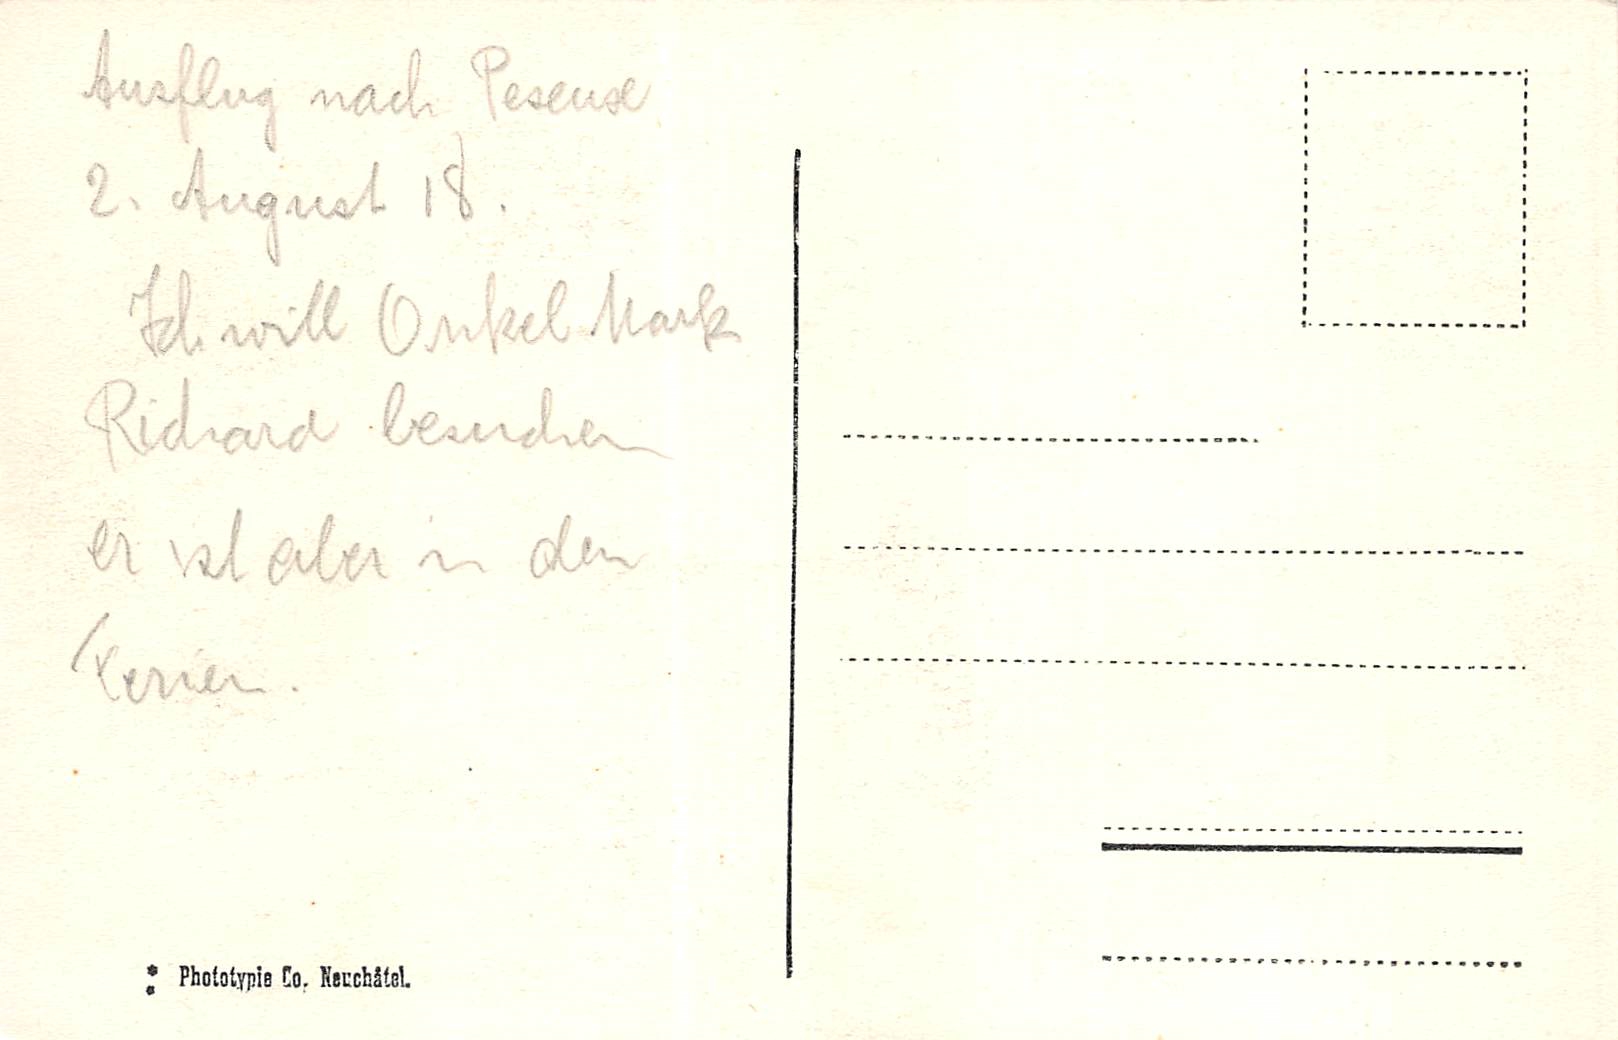 Ausflug nach Peseuse
2. August 18.
Ich will Onkel Mark
Richard besuchen
er ist aber in den
Ferien.
Phototypie Co. Neuchâtel.